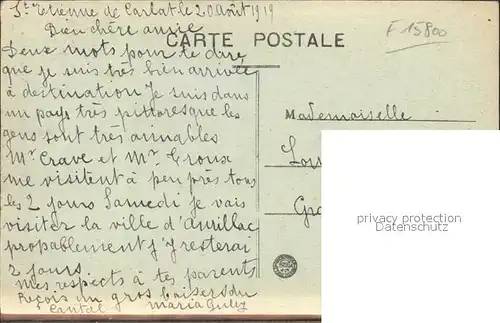 St Etienne de Carlat le 20 Août 1919
Bien chère amie
CARTE POSTALE
F 15800
Deux mots pour te dire
que je suis très bien arrivée
à destination Je suis dans
un pays très pittoresque les
gens sont très aimables
Mr Crave et Mr Croux
me visitent à peu près tous
les 2 jours Samedi je vais
visiter la ville d'Aurillac
propablement j'y resterai
2 jours
mes respects à tes parents
Reçois un gros baisers du
Cantal Maria
Mademoiselle
privacy protection
Datenschutz